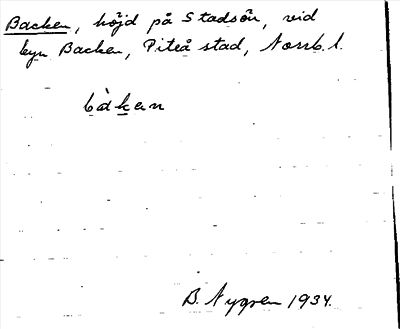 Backen, höjd på Stadsön, vid
byn Backen, Piteå stad, Norrb. l.
bàken
B. Nygren 1934.